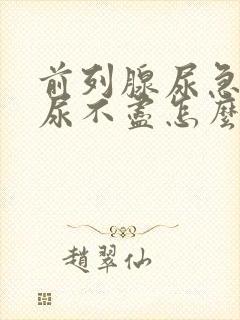 前列腺尿急
尿不盡怎麼
趙翠仙